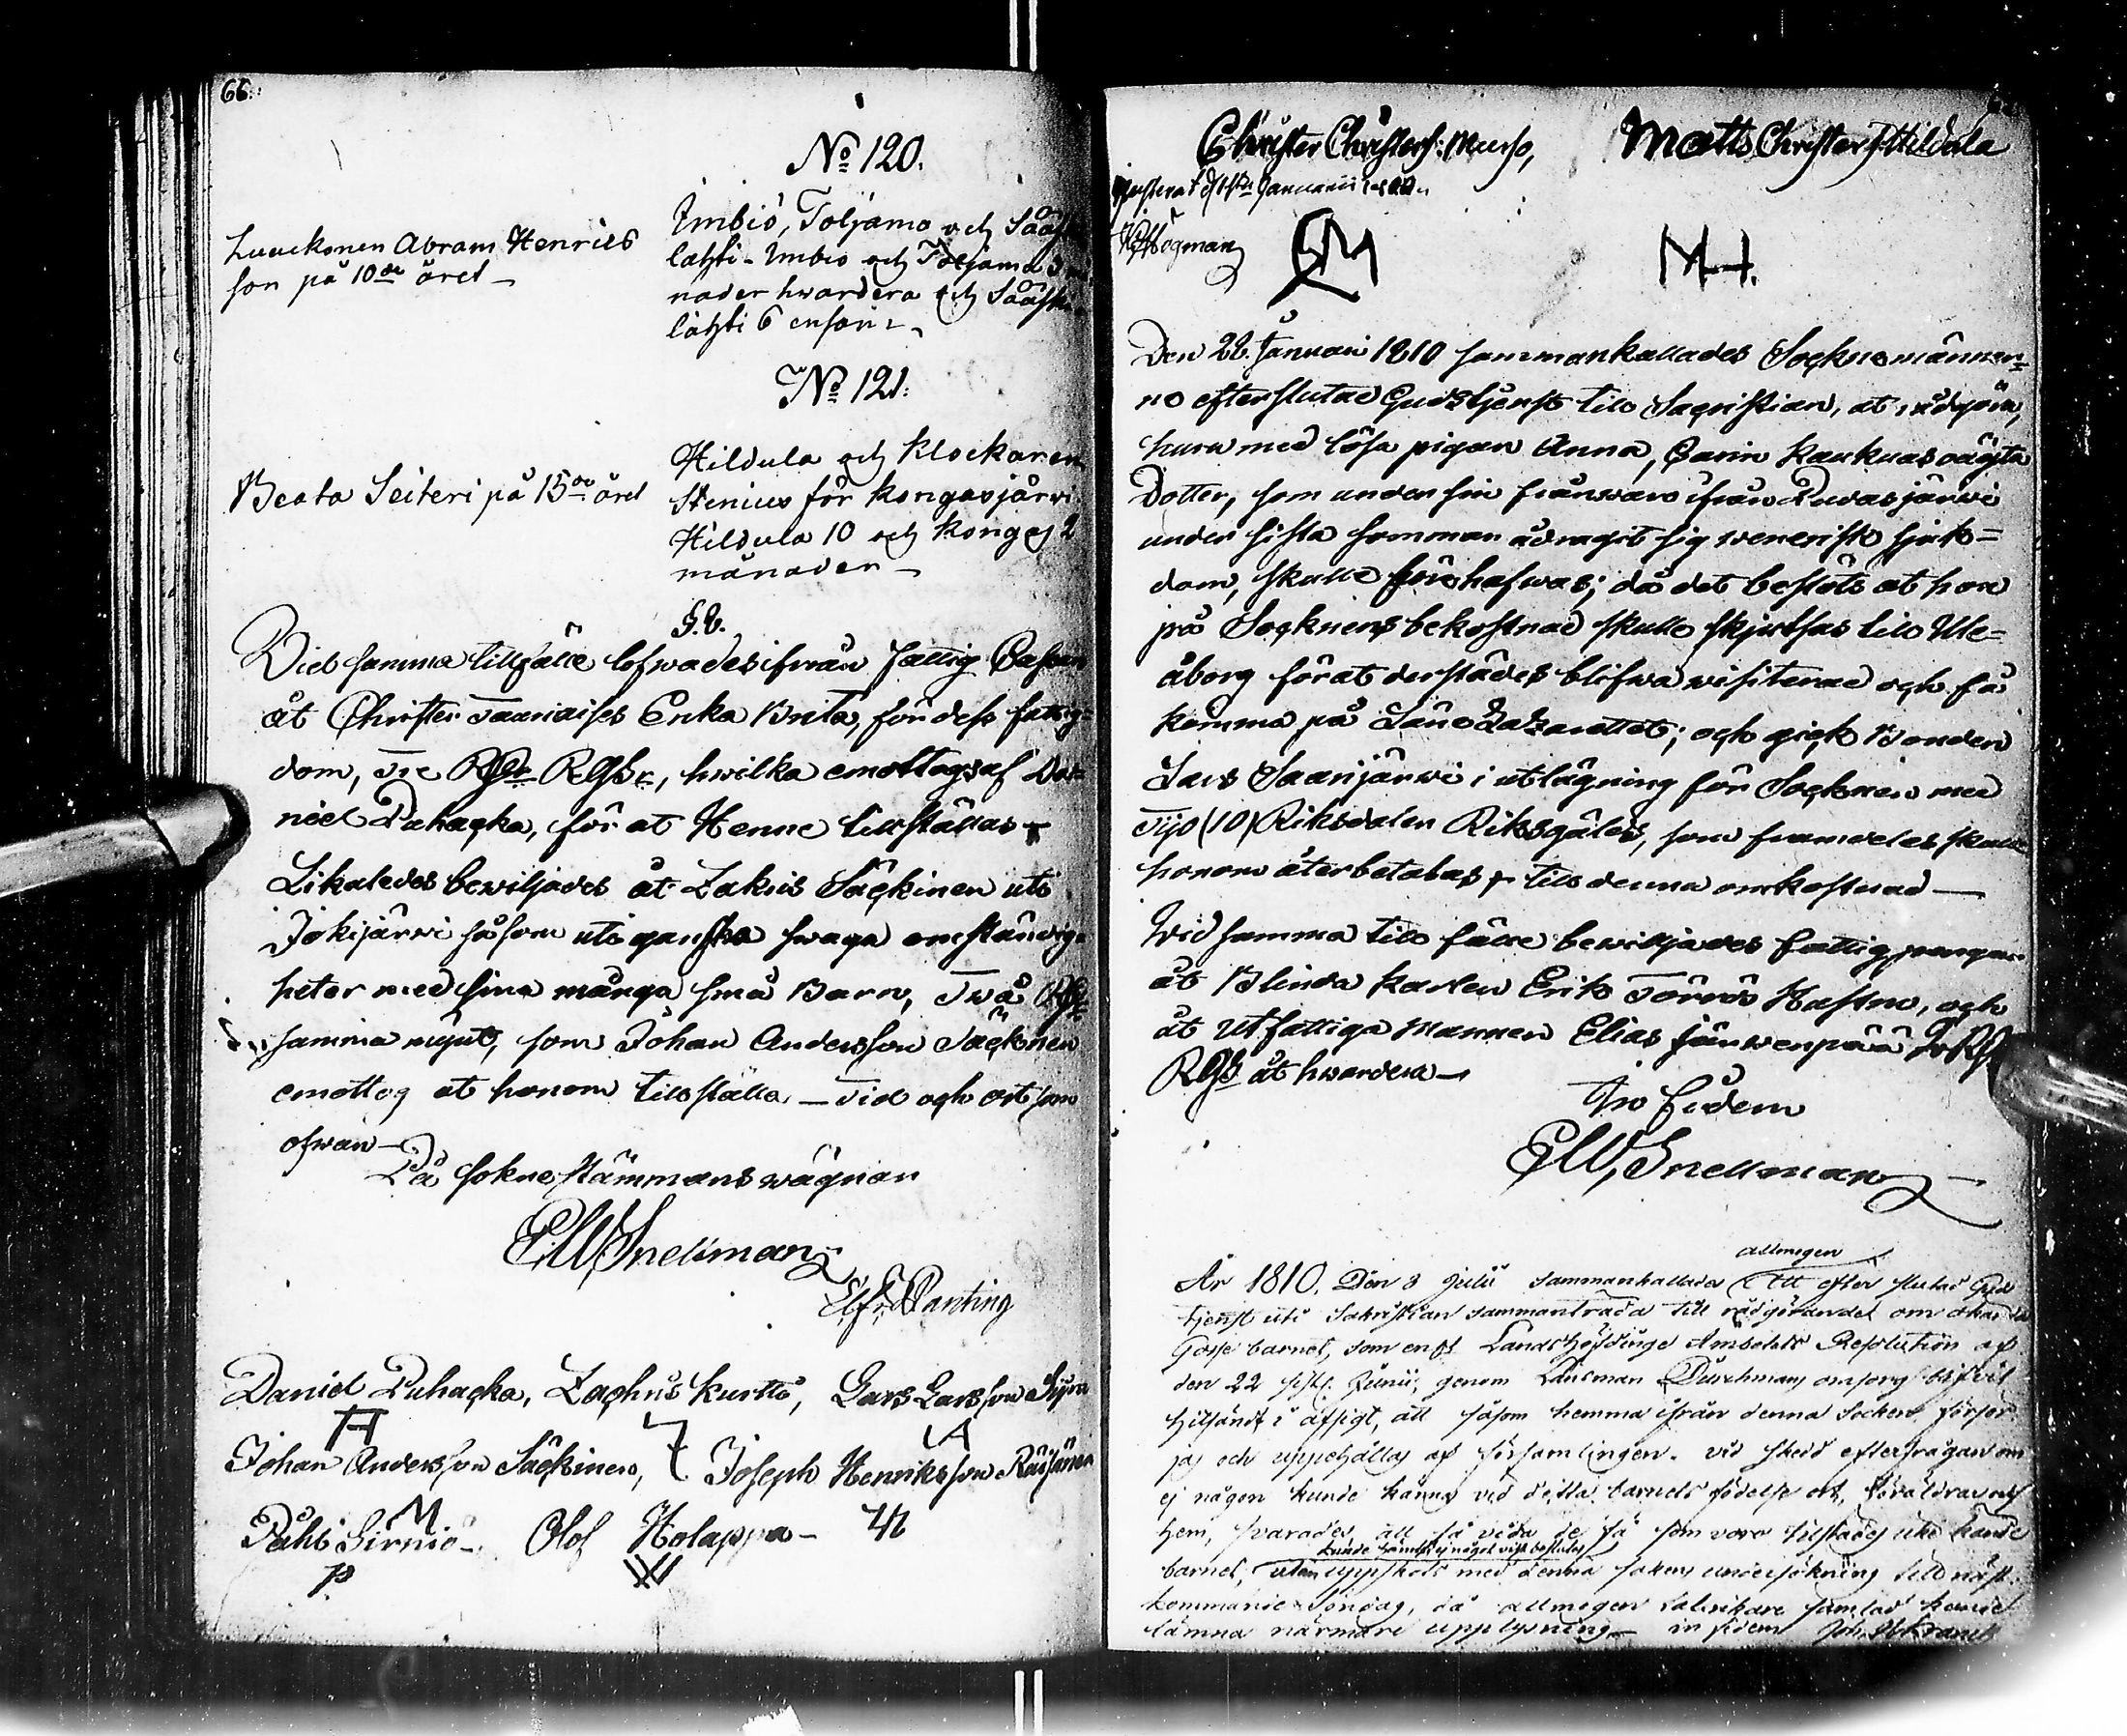 66.
No 120.
Luuckonen Abram Henrics
son på 10de året -
Imbiö, Toljamo och Sääsk
lahti - Imbio och Toljamo 3 m
nader hwardera och Sääske
lahti 6 ensam -
No 121.
Beata Seiteri på 15de året
Hildula och Klockaren
Stenius för Kongasjärvi
Hildula 10 och Kongas 2
månader -
§. 8.
Vid samma tillfälle lofwades ifrån Fattig Cassan
åt Christer Taanaises Enka Brita, för dess fattig-
dom, Tre Rdr RGs, hwilka emottogs af Da-
niel Puhacka, för at Henne tillställas -
Likaledes bewiljades åt Zakris Säckinen uti
Jokijärwi såsom uti ganska swaga omständig-
heter med sina många små Barn, Twå Rdr
samma mynt, som Johan Andersson Säckinen
emottog at honom tillställa. - Tid och ort som
ofwan -
På Sokne Stämmans wägnar
E W Snellman
Daniel Puhacka, Zachris Kurtti, Lars Larsson
Johan Andersson Säckinen, Joseph Henriksson Räisänen
Påhl Sirniö - Olof Holappa -
P.
Christer Christers: Murso, Matts Christers: Hildula
Justerat d. Januarii
Högman
CM MH.
Den 28. Januari 1810 sammankallades Sockne männer-
ne efter slutad Gudstjenst till Sacristian, at rådgöra,
huru med lösa pigan Anna, Carin Kaukuas oägta
Dotter, som under sin frånwaro ifrån Pudasjärwi
under sista sommar ådragit sig wenerisk sjuk-
dom, skulle förehafwas; då det beslöts at hon
på Socknens bekostnad skulle skjutsas till Ule-
åborg för at derstädes blifwa visiterad och få
komma på Läns Lazarettet; och gick Bonden
Lars Saarijärwi i utlägning för Socknen med
Tijo (10) Riksdaler Riksgälds, som framdeles skulle
honom återbetalas till denna omkostnad -
Wid samma tillfälle bewiljades fattig pengar
åt Blinda Karlen Erik Törrös Hustru, och
åt utfattiga Mannen Elias Järwenpää 2 Rdr
RGs åt hwardera -
In fidem
E W Snellman
allmogen
År 1810. Den 8 Julii sammankallades att efter slutad Gud
tjenst uti Sakristian sammanträda till rådgörandet om okända
Gosse barnet, som enl. Landshöfdinge Ambetets Resolution af
den 22 sistl. Junii, genom Länsman omsorg blifvit
hitsändt i afsigt, att såsom hemma ifrån denna Socken försör
jas och uppehållas af församlingen. Vid skedd efterfrågan om
ej någon kunde känna vid detta barnets födelse ort, föräldrar och
hem, svarades, att så vida de få som voro tillstädes icke kände
kunde härvid ej något visst beslutas
barnet, utan uppsköts med denna sakens undersökning till näst-
kommande Söndag, då allmogen talrikare samlad kunde
lämna närmare upplysning - in fidem Joh.